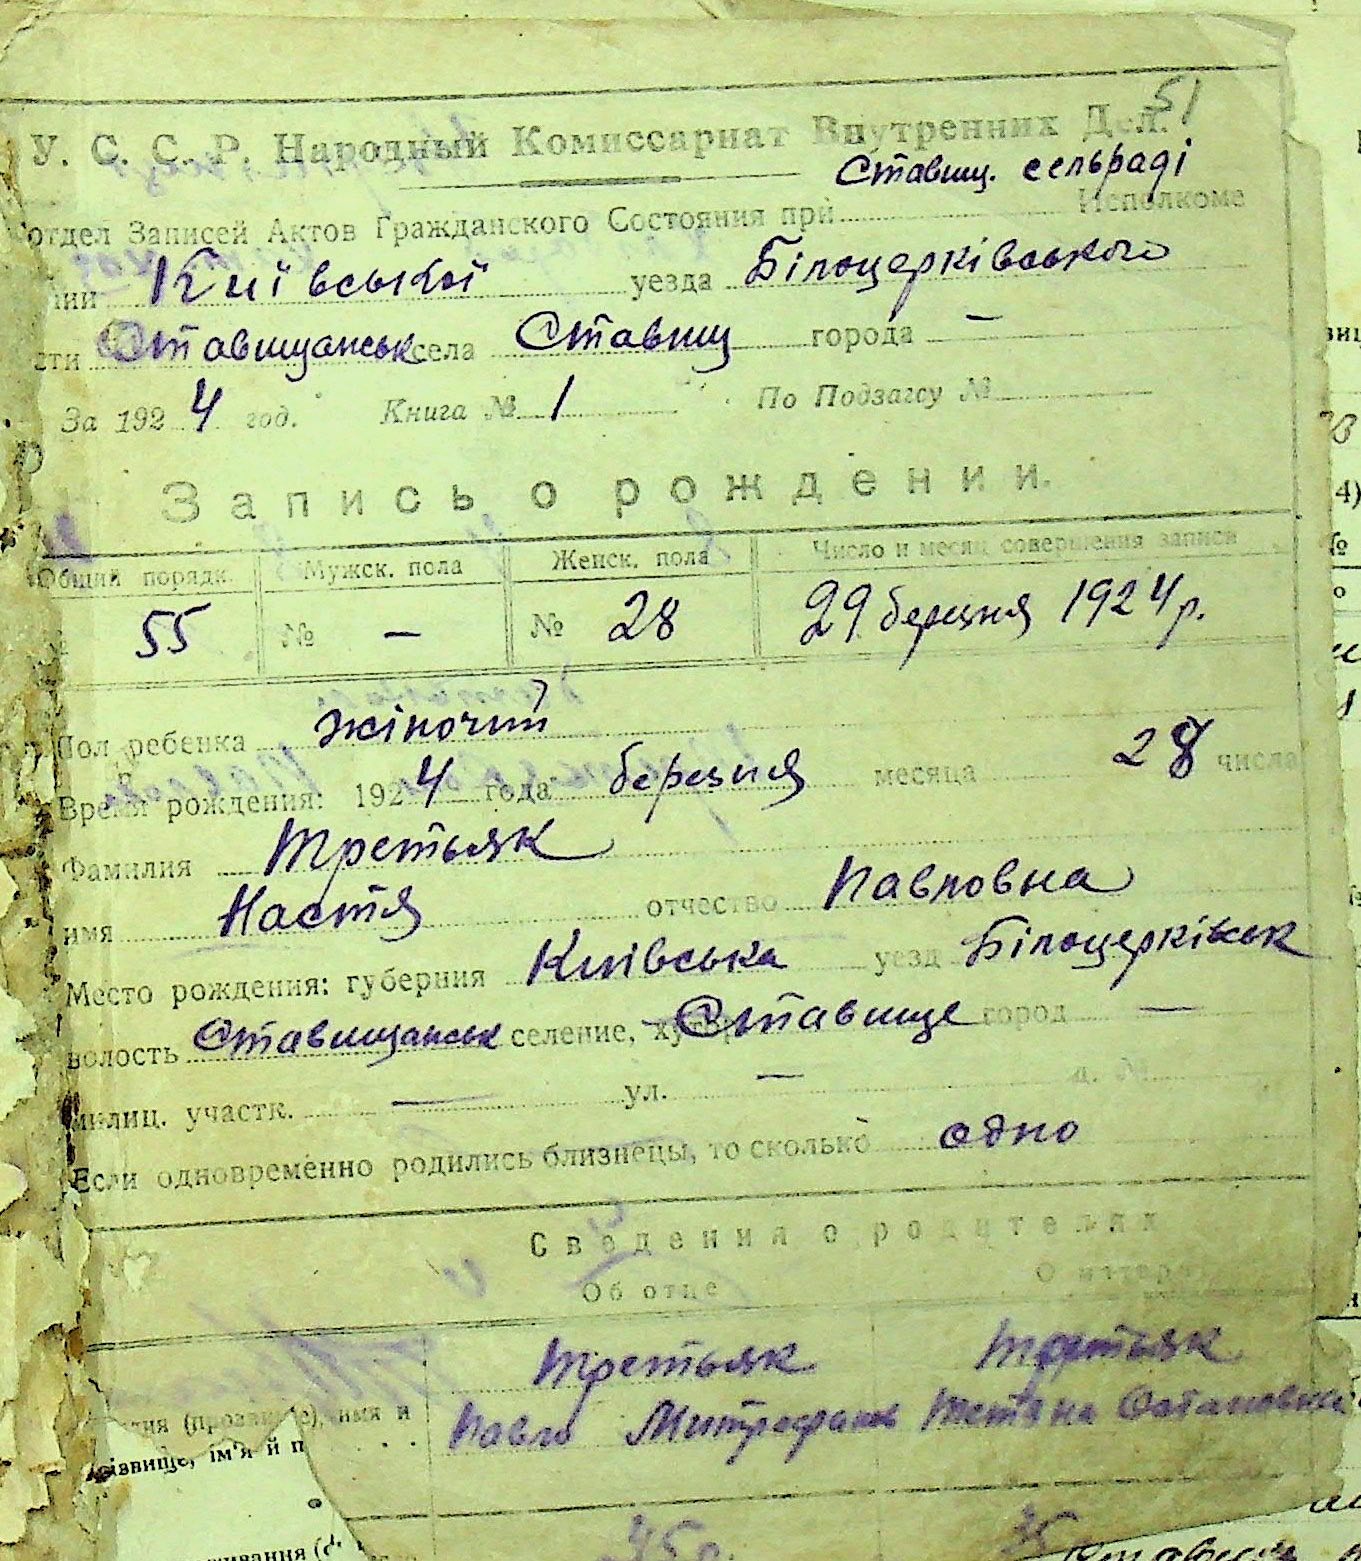 51
У. С. С. Р. Народный Комиссариат Внутренних Дел.
Ставищ. сельраді
отдел Записей Актов Гражданского Состояния при Исполкоме
нии Київської уезда Білоцерківського
сти Ставищанськ села Ставищ города —
За 1924 год. Книга № 1 По Подзагсу №
Запись о рождении.
Общий порядк. Мужск. пола Женск. пола Число и месяц совершения записи
55 № — № 28 29 березня 1924 р.
Пол ребенка жіночий
Время рождения: 1924 года березня месяца 28 числа
Фамилия Третьяк
имя Настя отчество Павловна
Место рождения: губерния Київська уезд Білоцерківськ
волость Ставищанськ селение, Ставище город —
милиц. участк. — ул. — д. №
Если одновременно родились близнецы, то сколько одно
Сведения о родителях
Об отце О матери
Третьяк Третьяк
(прозвище), имя и Павло Митрофанов Тетяна
ім'я й п
35